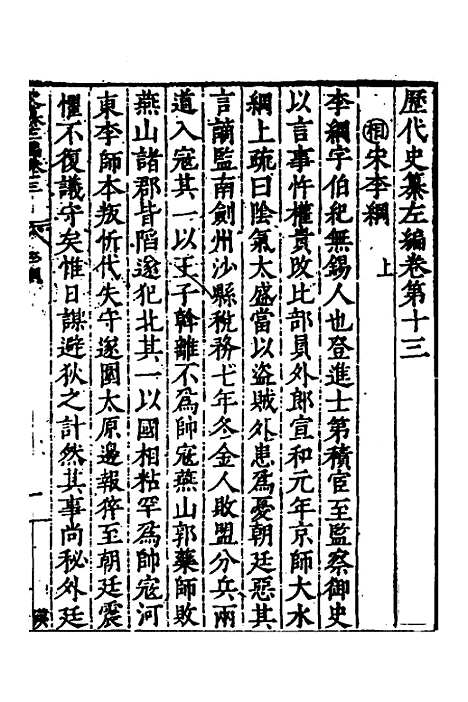 歷代史纂左編卷第十三
相宋李綱上
李綱字伯紀無錫人也登進士第積官至監察御史
以言事忤權貴改比部員外郎宣和元年京師大水
綱上疏曰陰氣太盛當以盗賊外患為憂朝廷惡其
言謫監南劍州沙縣稅務七年冬金人敗盟分兵兩
道入寇其一以王子斡離不為帥寇燕山郭藥師敗
燕山諸郡皆陷遂犯北其一以國相粘罕為帥寇河
東李師本叛忻代失守遂圍太原邊報猝至朝廷震
懼不復議守矣惟日謀避狄之計然其事尚秘外廷